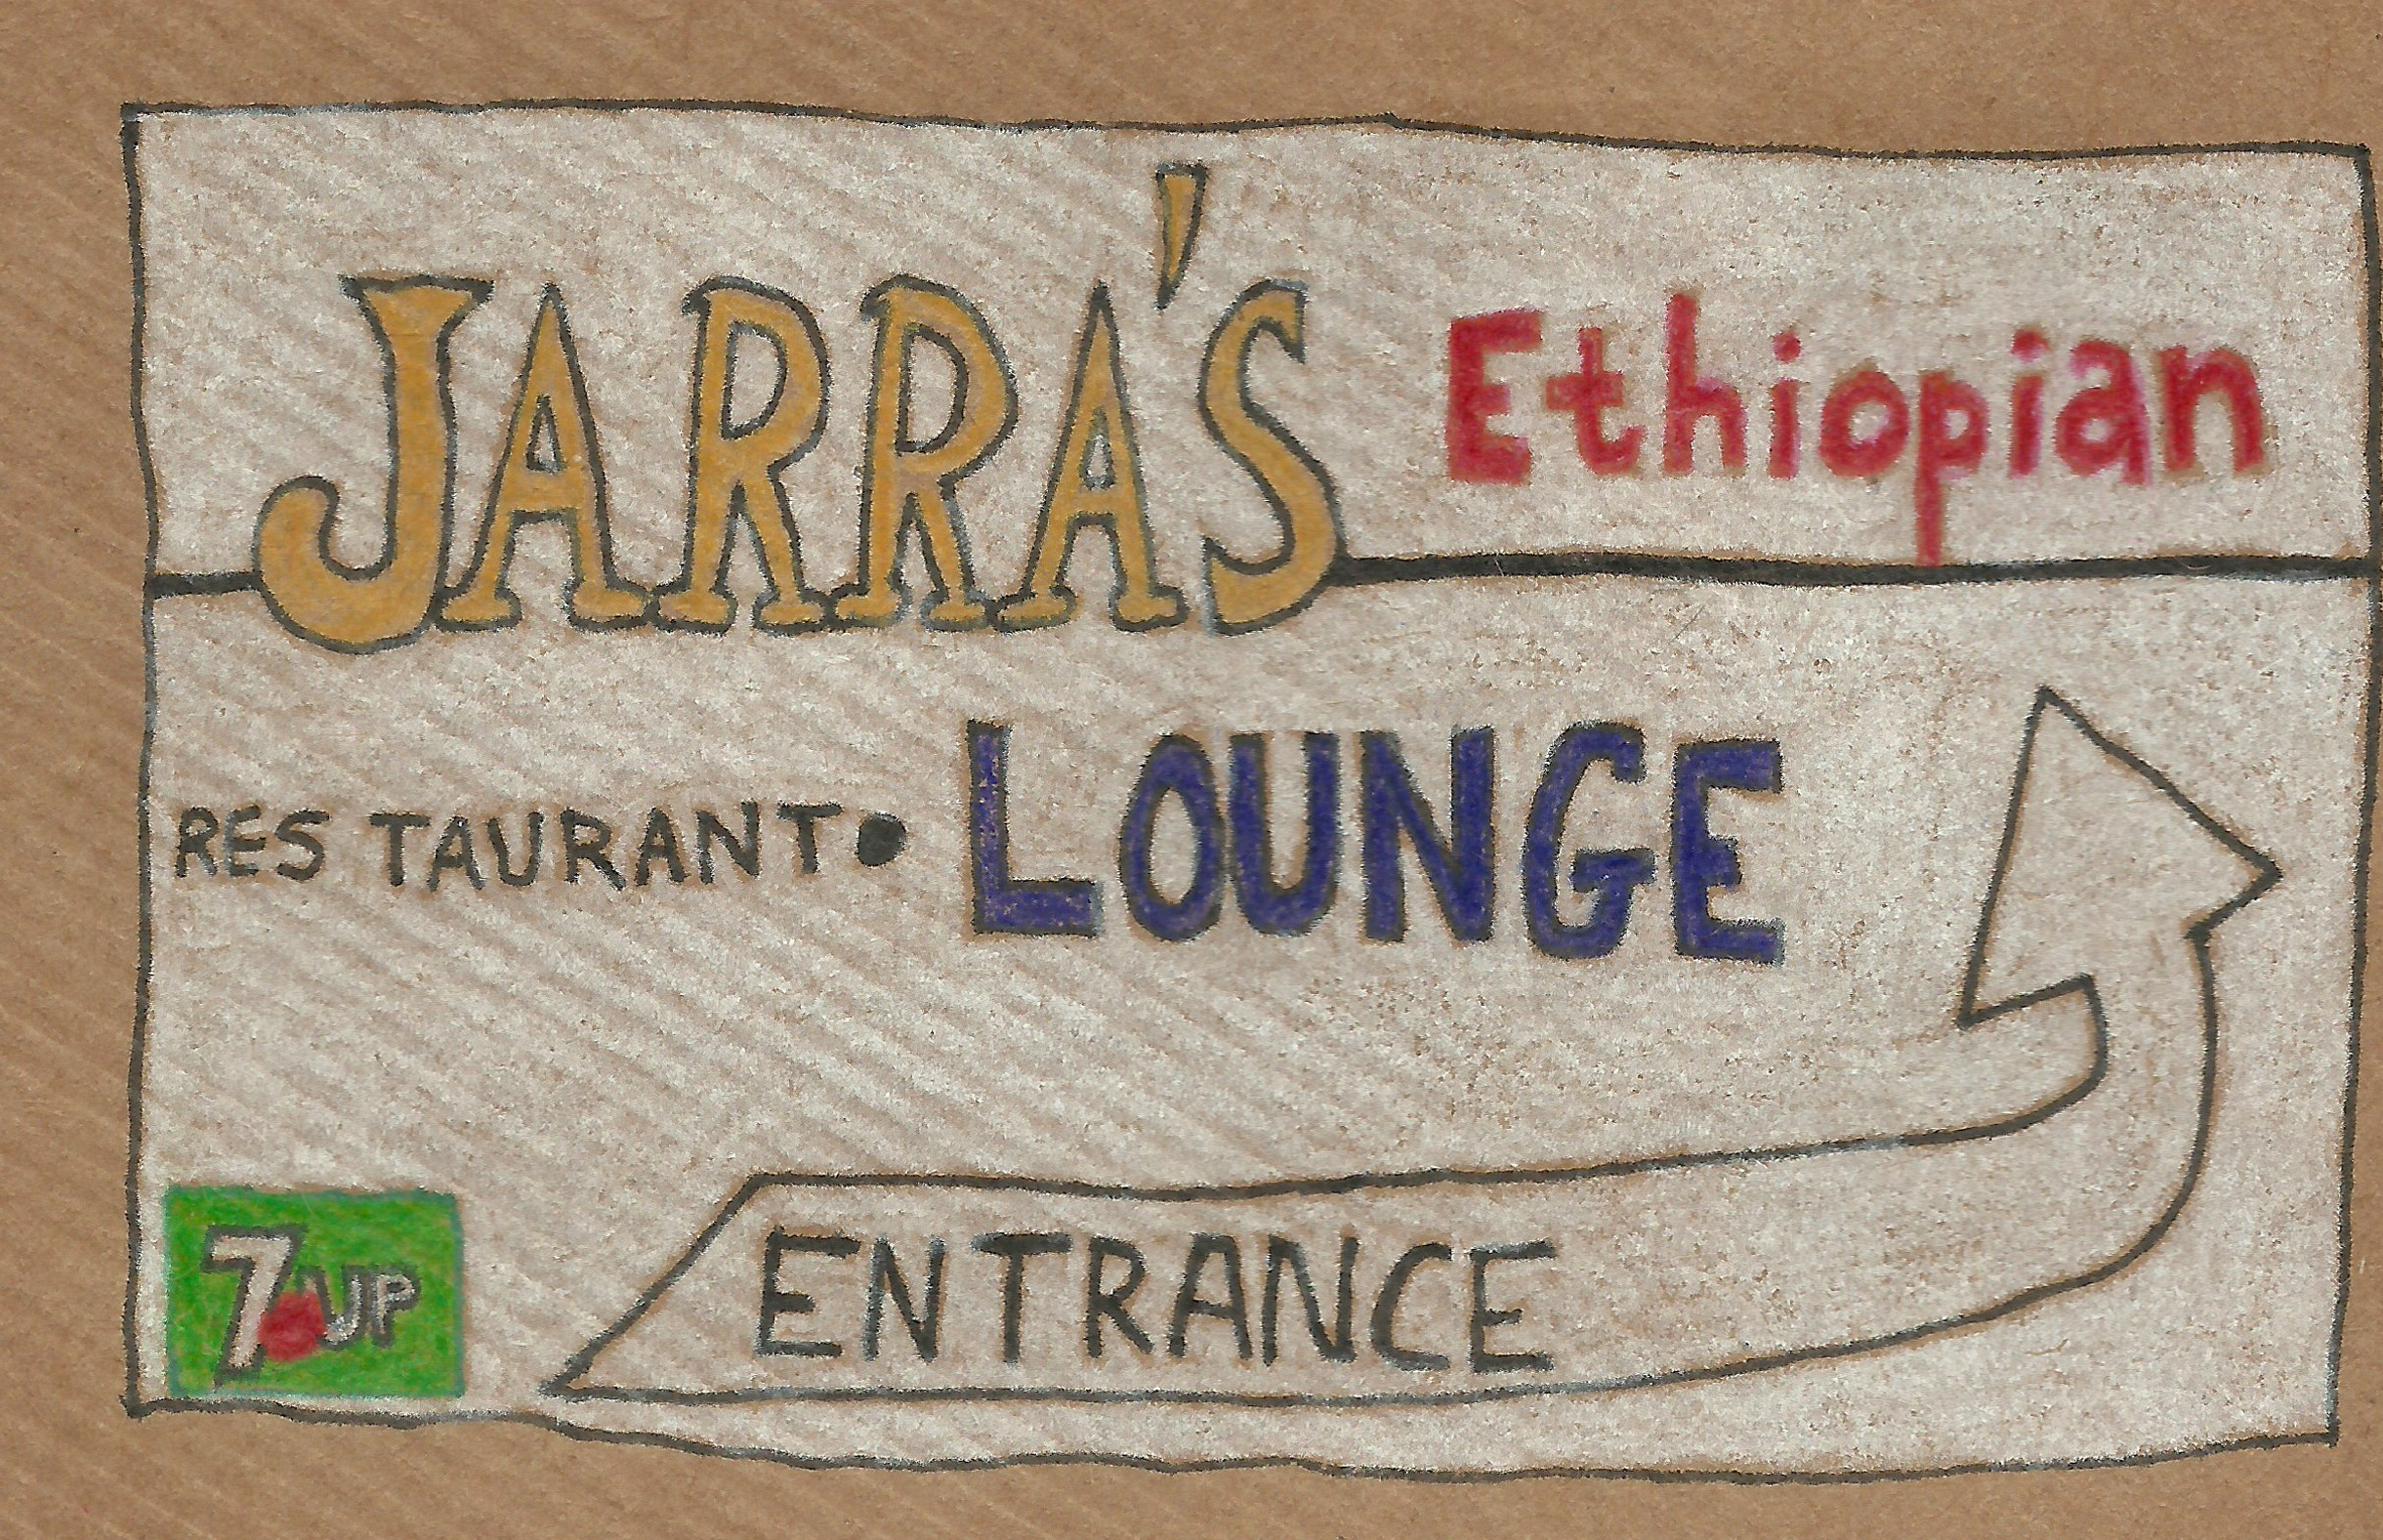 JARRA'S Ethiopian
RES TAURANT • LOUNGE
ENTRANCE
7UP